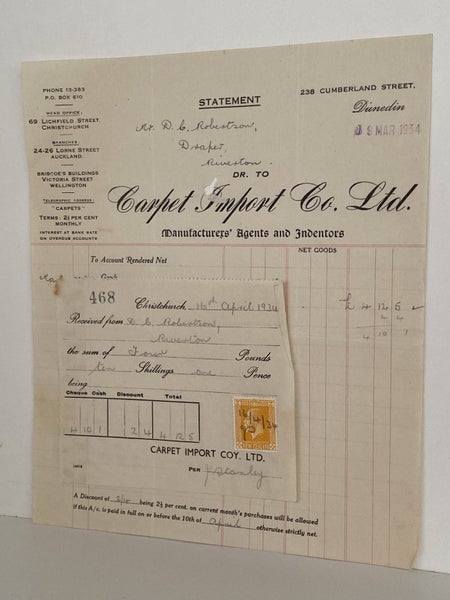 PHONE 13-383
P.O. BOX 610
HEAD OFFICE:
69 LICHFIELD STREET,
CHRISTCHURCH
BRANCHES:
24-26 LORNE STREET
AUCKLAND.
BRISCOE'S BUILDINGS
VICTORIA STREET
WELLINGTON
TELEGRAPHIC ADDRESS:
"CARPETS"
TERMS: 2½ PER CENT
MONTHLY
INTEREST AT BANK RATE
ON OVERDUE ACCOUNTS
STATEMENT
238 CUMBERLAND STREET,
Dunedin
9 MAR 1934
Mr. D. C. Robertson,
Draper,
Riverton.
DR. TO
Carpet Import Co. Ltd.
Manufacturers' Agents and Indentors
NETT GOODS
To Account Rendered Net
£ 4 12 5
2 4
4 10 1
468
Christchurch, 16th April 1934
Received from D. C. Robertson,
Riverton
the sum of Four Pounds
ten Shillings one Pence
being
Cheque Cash Discount Total
4 10 1 2 4 4 12 5
16/4/34
CARPET IMPORT COY. LTD.
PER
A Discount of 2/10 being 2½ per cent. on current month's purchases will be allowed
if this A/c. is paid in full on or before the 10th of April otherwise strictly net.